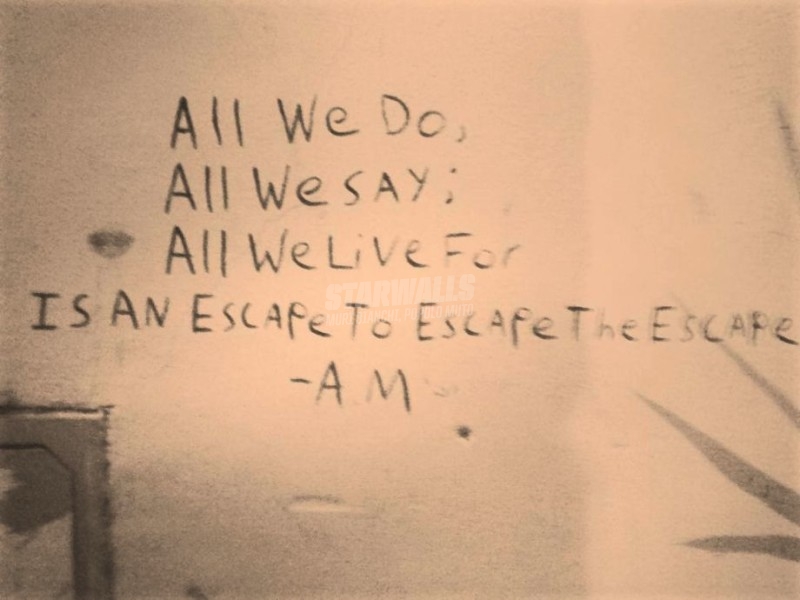 All We Do,
All We SAY;
All We Live For
IS AN EscAPe To EscAPe The EscAPe
-A.M
STARWALLS